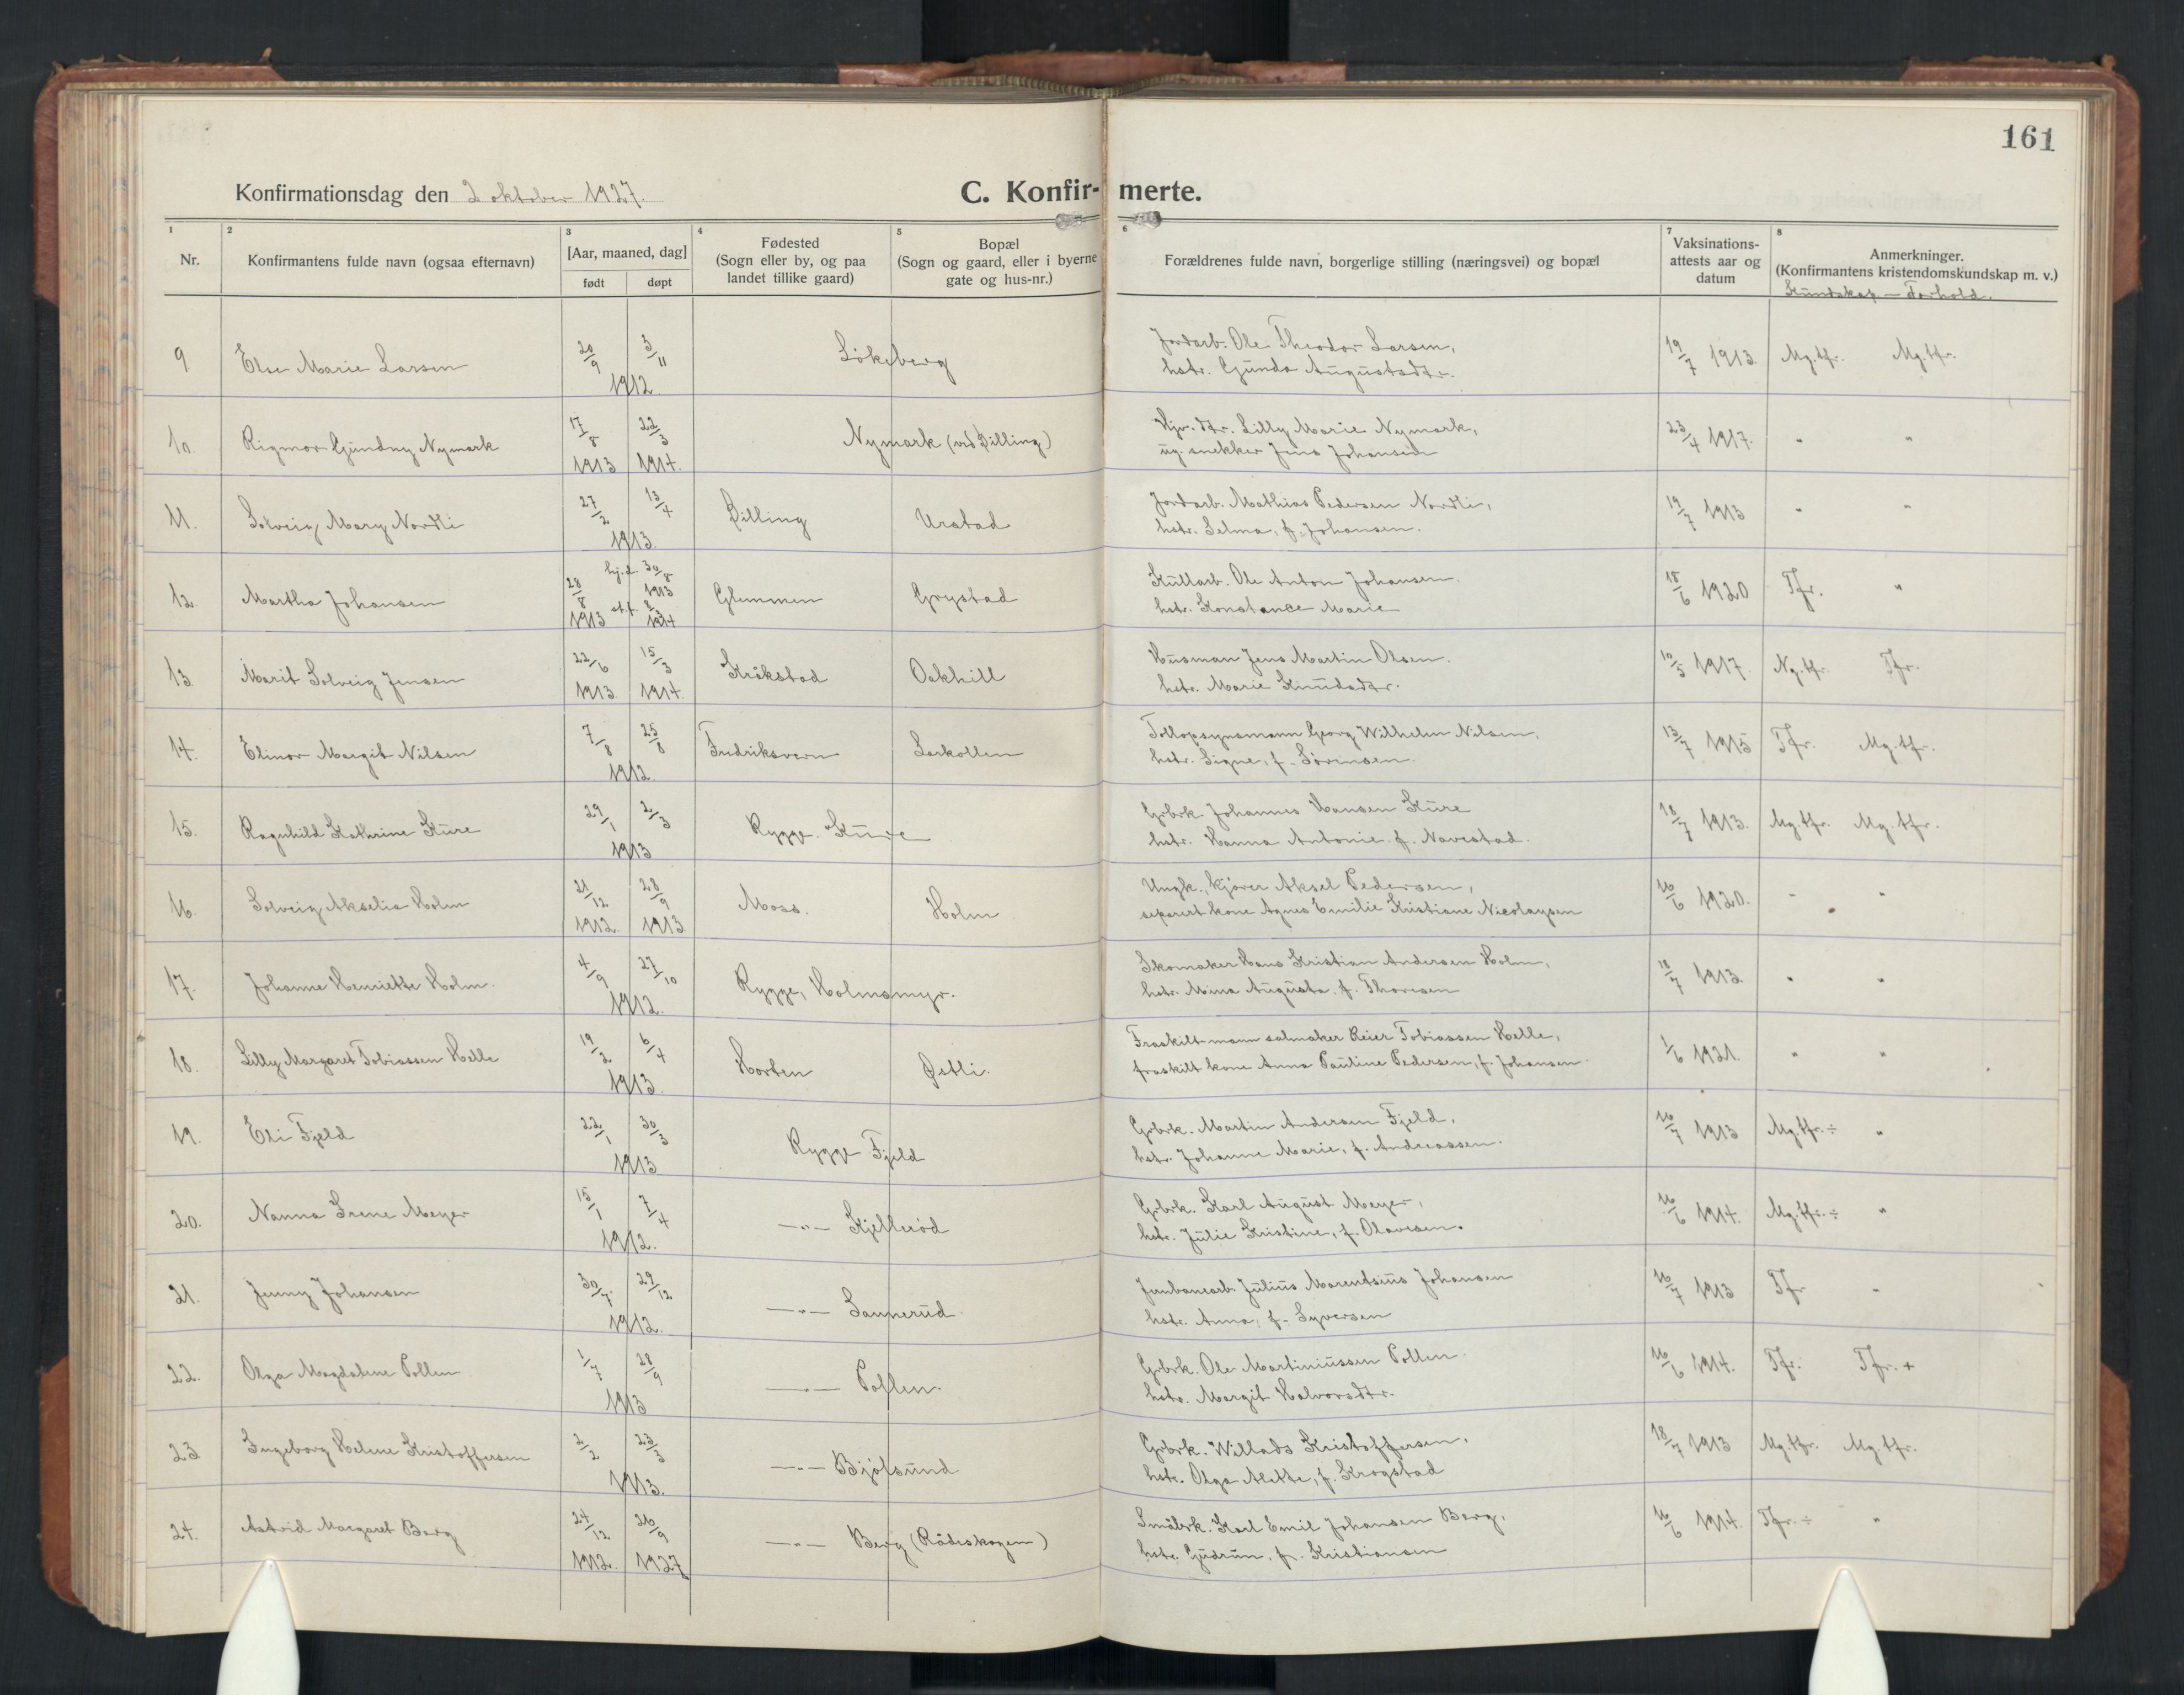 161
Konfirmationsdag den 2 oktober 1927.
C. Konfirmerte.
1 2 3 4 5 6 7 8
Nr.
Konfirmantens fulde navn (ogsaa efternavn)
[Aar, maaned, dag]
født døpt
Fødested
(Sogn eller by, og paa
landet tillike gaard)
Bopæl
(Sogn og gaard, eller i byerne
gate og hus-nr.)
Forældrenes fulde navn, borgerlige stilling (næringsvei) og bopæl
Vaksinations-
attests aar og
datum
Anmerkninger.
(Konfirmantens kristendomskundskap m. v.)
Kundskap – Forhold.
9 Else Marie Larsen 20/9 3/11 1912 Løkeberg
Jordarb. Ole Theodor Larsen,
hstr. Gunda Augustsdtr.
19/7 1913. Mg.tfr. Mg.tfr.
10. Rigmor Gundny Nymark 17/8 1913 22/3 1914. Nymark (ved Dilling)
Gjv. dtr. Lilly Marie Nymark,
ug. snekker Jens Johansen
23/4 1917. " "
11. Solveig Mary Nordli 27/2 13/4 1913. Dilling Urstad
Jordarb. Mathias Pedersen Nordli,
hstr. Selma, f. Johansen.
19/7 1913 " "
12. Martha Johansen 28/8 1913 hj.d. 30/8 1913 st.f. 1914 Glemmen Grystad
Kullarb. Ole Anton Johansen.
hstr. Konstance Marie
18/6 1920 Tfr. "
13. Marit Solveig Jensen 22/6 1913. 15/3 1914. Kråkstad Oakhill
Husman Jens Martin Olsen.
hstr. Marie Knudsdtr.
10/5 1917. Ng.tfr. Tfr.
14. Elinor Margit Nilsen 7/8 25/8 1912. Fredriksvern Larkollen
Tollopsynsmann Georg Wilhelm Nilsen,
hstr. Signe, f. Sørensen.
13/7 1915 Tfr. Mg.tfr.
15. Ragnhild Kathrine Kure 29/1 2/3 1913 Rygge. Kure
Grbrk. Johannes Hansen Kure
hstr. Hanna Antonie f. Navestad.
18/7 1913. Mg.tfr. Mg.tfr.
16. Solveig Akselia Holm 21/12 1912. 28/9 1913 Moss. Holm
Ungk., kjører Aksel Pedersen,
separert kone Agnes Emilie Kristiane Nicolaysen
16/6 1920. " "
17. Johanne Henriette Holm. 4/9 27/10 1912. Rygge, Holmsmyr.
Skomaker Hans Kristian Andersen Holm,
hstr. Mina Augusta, f. Thoresen
18/7 1913. " "
18. Lilly Margaret Tobiassen Helle 19/2 6/4 1913. Horten Østli.
Fraskilt mann salmaker Reier Tobiassen Helle,
fraskilt kone Anna Pauline Pedersen, f. Johansen.
1/6 1921. " "
19. Eli Fjeld 22/1 30/3 1913 Rygge Fjeld
Grbrk. Martin Andersen Fjeld,
hstr. Johanne Marie, f. Andreassen.
16/7 1913 Mg.tfr.÷ "
20. Nanna Irene Meyer 15/1 7/4 1912. —"— Kjellerød
Grbrk. Karl August Meyer,
hstr. Julie Kristine, f. Olavesen.
16/6 1914. Mg.tfr.÷ "
21. Jenny Johansen 30/7 29/12 1912. —"— Sannerud.
Jernbanearb. Julius Marentsius Johansen
hstr. Anna, f. Syversen
16/7 1913 Tfr "
22. Olga Magdalene Pollen 1/7 28/9 1913 —"— Pollen.
Grbrk. Ole Martiniussen Pollen.
hstr. Margit Halvorsdtr.
16/6 1914. Tfr. Tfr.+
23. Ingeborg Helene Kristoffersen 2/2 23/3 1913. —"— Bjølsund
Grbrk. Willads Kristoffersen,
hstr. Olga Alette, f. Krogstad
18/7 1913 Mg.tfr. Mg.tfr.
24. Astrid Margaret Berg 24/12 1912. 26/9 1927 —"— Berg (Rådeskogen)
Småbrk. Karl Emil Johansen Berg,
hstr. Gudrun, f. Kristiansen
16/6 1914. Tfr.÷ "